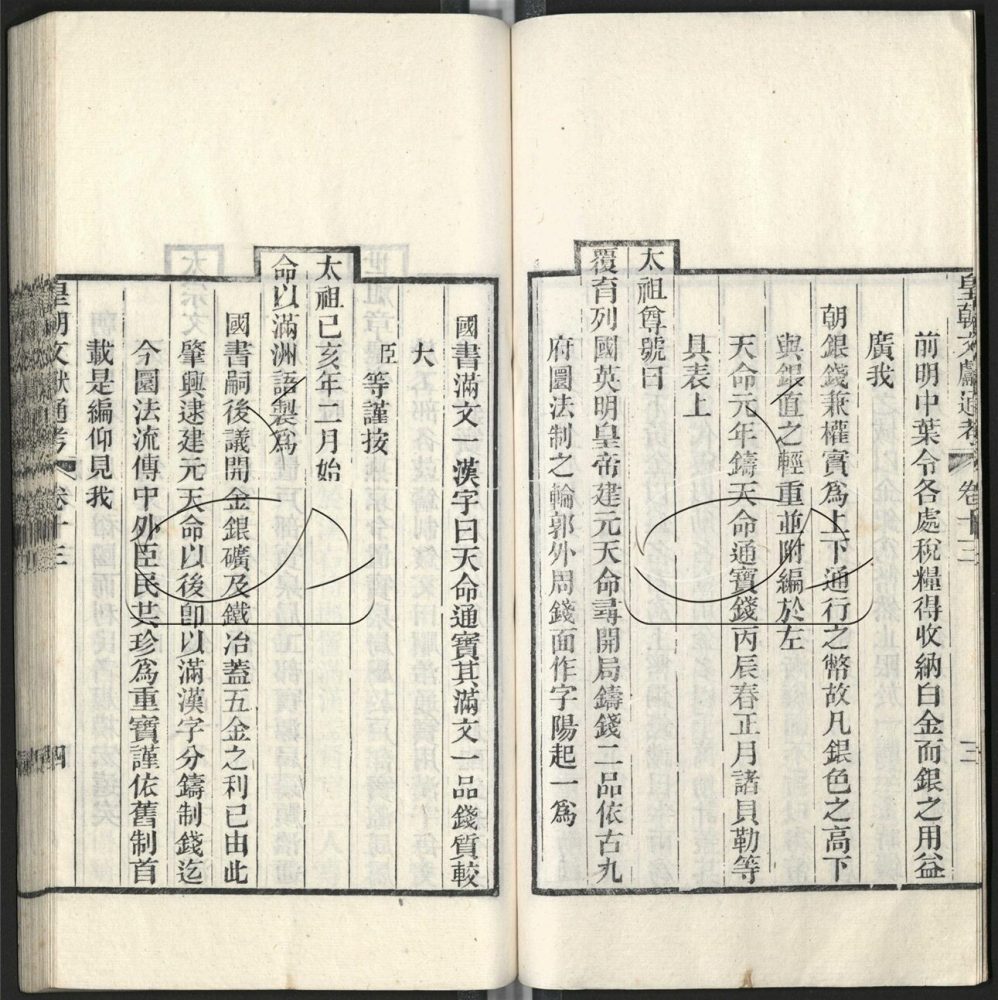 皇朝文獻通考 卷十三 三
前明中葉令各處稅糧得收納白金而銀之用益
廣我
朝銀錢兼權實為上下通行之幣故凡銀色之高下
與銀值之輕重並附編於左
天命元年鑄天命通寶錢丙辰春正月諸貝勒等
具表上
太祖尊號曰
覆育列國英明皇帝建元天命尋開局鑄錢二品依古九
府圜法制之輪郭外周錢面作字陽起一為
國書滿文一漢字曰天命通寶其滿文一品錢質較
大
臣等謹按
太祖己亥年二月始
命以滿洲語製為
國書嗣後議開金銀礦及鐵冶蓋五金之利已由此
肇興逮建元天命以後卽以滿漢字分鑄制錢迄
今圜法流傳中外臣民共珍為重寶謹依舊制首
載是編仰見我
皇朝文獻通考 卷十三 四